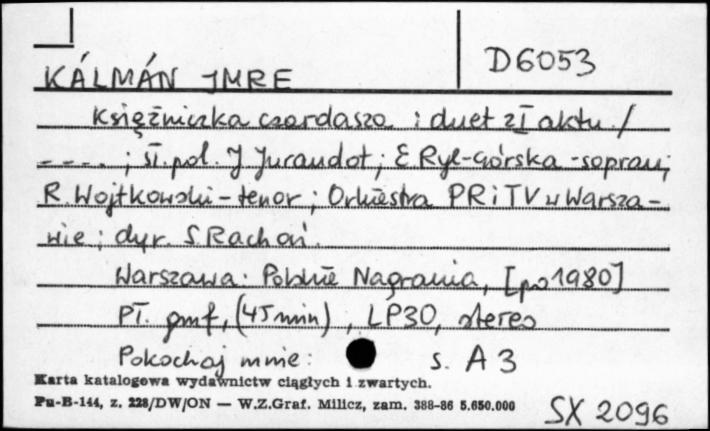 D6053
KÁLMÁN IMRE
Księżniczka czardasza : duet z I aktu /
---- ; sł. pol. J Jurandot ; E Ryl-Górska - sopran ;
R. Wojtkowski - tenor ; Orkiestra PRiTV w Warsza-
wie ; dyr. S. Rachoń.
Warszawa : Polskie Nagrania, [po 1980]
Pł. gmf, (45 min), LP30, stereo
Pokochaj mnie : s. A 3
Karta katalogowa wydawnictw ciągłych i zwartych.
Pu-B-144, z. 228/DW/ON — W.Z.Graf. Milicz, zam. 388-86 5.650.000
SX 2096